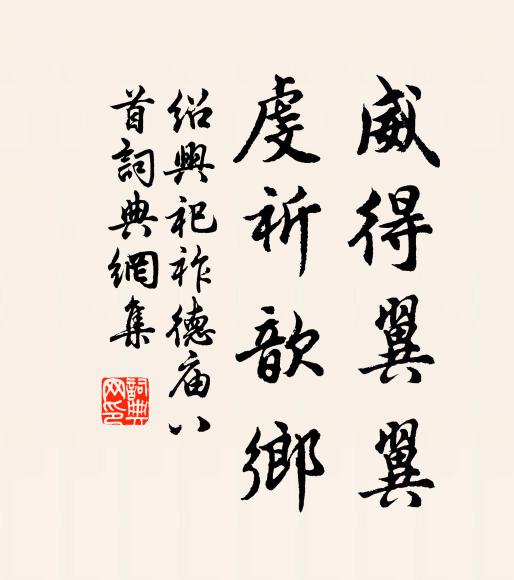 威得翼翼
虔祈歆鄉
紹興祀祚德庙八
首詞典網集
詞典网印